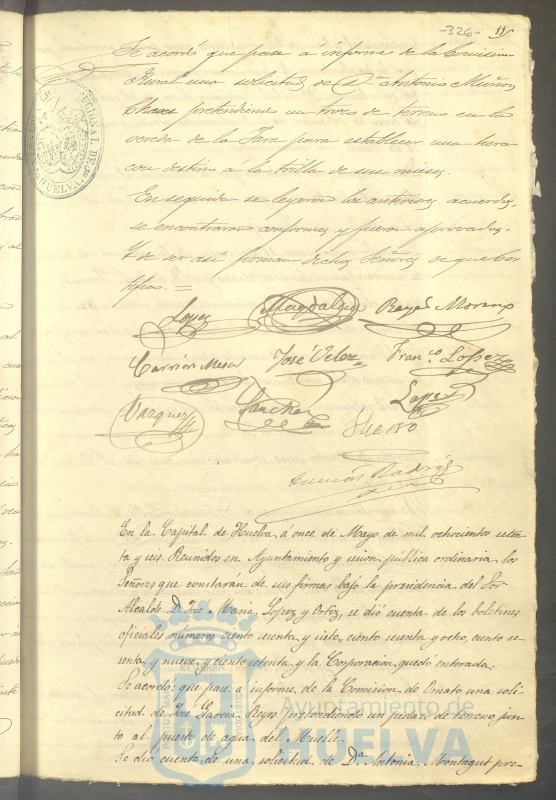 -326- 11
Se acordó que pase á informe de la Comision
Rural una solicitud de Dn Antonio Muñoz
Chaves pretendiendo un trozo de terreno en la
vereda de la para establecer una hera
con destino á la trilla de sus mieses.
En seguida se leyeron los anteriores acuerdos,
se encontraron conformes y fueron aprobados.
Y de ser asi firman dichos Señores de que cer
tifico. =
Lopez Magdalena Reyes Moreno
Carrion Mesa José Velez Franco Lopez
Vazquez Sanchez Lopez
En la Capital de Huelva, á once de Mayo de mil ochocientos seten
ta y seis. Reunidos en Ayuntamiento y sesion pública ordinaria los
Señores que constaran de sus firmas bajo la presidencia del Sor
Alcalde D. José Maria Lopez y Ortiz, se dió cuenta de los boletines
oficiales números ciento sesenta y siete, ciento sesenta y ocho, ciento se
senta y nueve, y ciento setenta, y la Corporacion quedó enterada:
Se acordó: que pase a informe, de la Comision de Ornato una soli
citud de José Garcia Reyes pretendiendo un pedazo de terreno jun
to al puesto de agua del Muelle.
Se dió cuenta de una solicitud de Da Antonia Montagut pre-
Ayuntamiento de
HUELVA